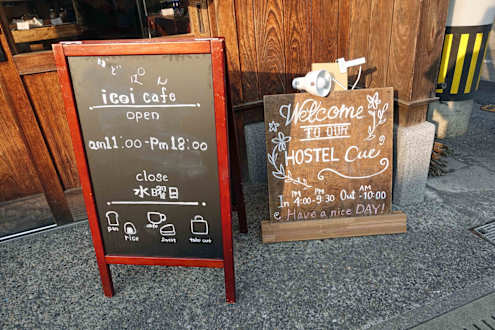 icoi cafe
open
am11:00-Pm18:00
close
水曜日
pan
rice
cafe
sweet
take out
Welcome
TO OUR
HOSTEL Cue
PM PM AM
In 4:00-9:30 Out-10:00
Have a nice DAY!